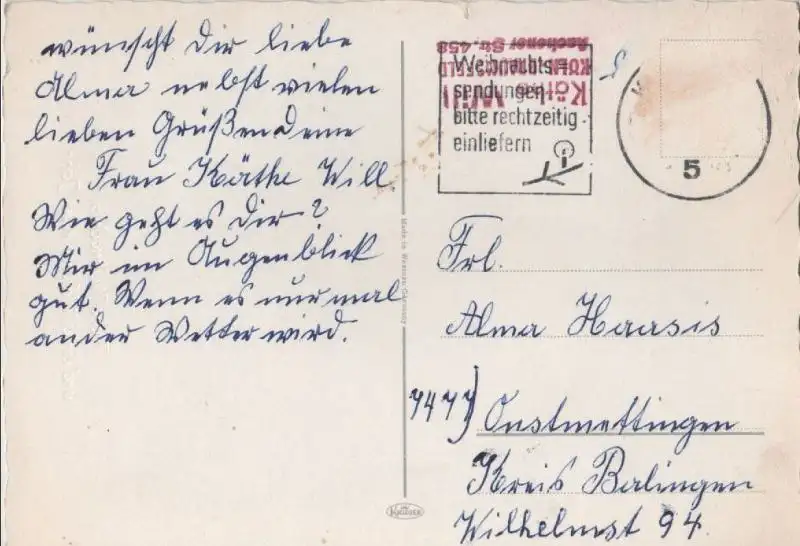 wünscht Dir liebe
Alma nebst vielen
lieben Grüßen deine
Frau Käthe Will.
Wie geht es dir?
Mir im Augenblick
gut. Wenn es nur mal
ander Wetter wird.
Made in Western-Germany
KRÜGER
Käthe Will
KÖLN-BRAUNSFELD
Aachener Str. 458
Weihnachts-
sendungen
bitte rechtzeitig
einliefern
5
Frl.
Alma Haasis
7477) Onstmettingen
Kreis Balingen
Wilhelmst 94.